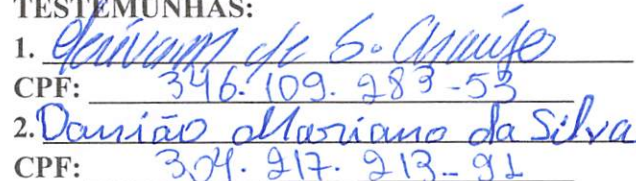 TESTEMUNHAS:
1. Gerivam de S. Araújo
CPF: 346.109.283-53
2. Damião Mariano da Silva
CPF: 304.217.213-91